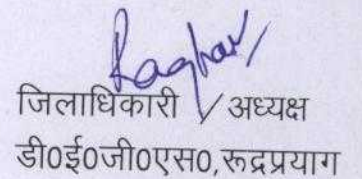 Raghav
जिलाधिकारी / अध्यक्ष
डी0ई0जी0एस0,रूद्रप्रयाग